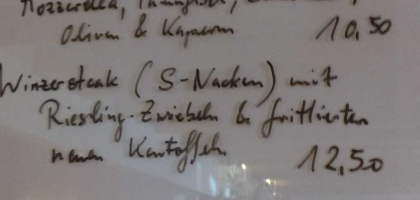 Mozzarella,
Oliven & Kapern 10,50
Winzersteak (S-Nacken) mit
Riesling-Zwiebeln & frittierten
neuen Kartoffeln 12,50